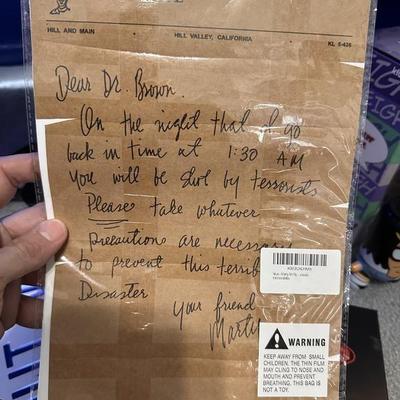 HILL AND MAIN • HILL VALLEY, CALIFORNIA • KL 5-426
Dear Dr. Brown,
On the night that I go
back in time at 1:30 AM
you will be shot by terrorists
Please take whatever
precautions are necessary
to prevent this terrible
Disaster
Your friend
Marty
WARNING
KEEP AWAY FROM SMALL
CHILDREN. THE THIN FILM
MAY CLING TO NOSE AND
MOUTH AND PREVENT
BREATHING. THIS BAG IS
NOT A TOY.